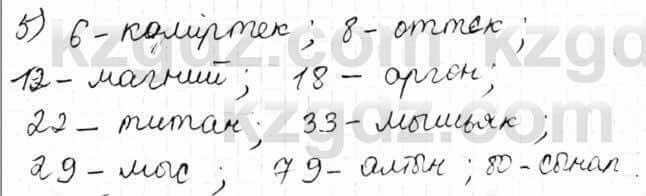 5) 6 - көміртек; 8 - оттек;
12 - магний; 18 - аргон;
22 - титан; 33 - мышьяк;
29 - мыс; 79 - алтын; 80 - сынап.